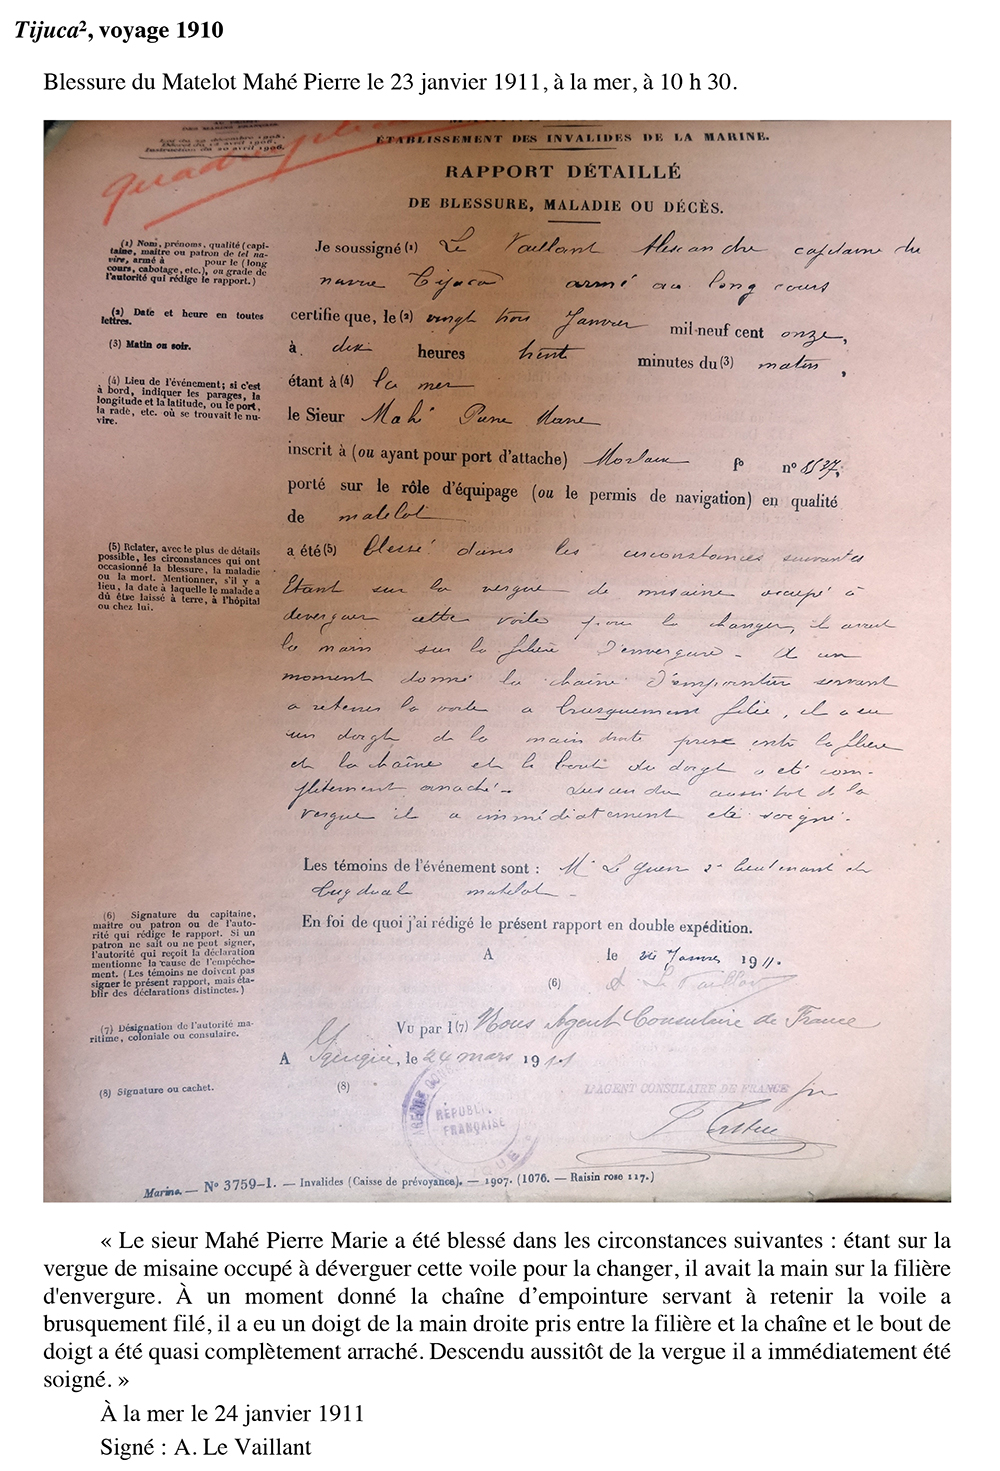 Tijuca², voyage 1910
Blessure du Matelot Mahé Pierre le 23 janvier 1911, à la mer, à 10 h 30.
DES MARINS FRANÇAIS
Loi du 29 décembre 1905,
Décret du 14 avril 1906,
Instruction du 20 avril 1906.
MARINE
ÉTABLISSEMENT DES INVALIDES DE LA MARINE.
RAPPORT DÉTAILLÉ
DE BLESSURE, MALADIE OU DÉCÈS.
(1) Nom, prénoms, qualité (capi-
taine, maître ou patron de tel na-
vire, armé à pour le (long
cours, cabotage, etc.), ou grade de
l'autorité qui rédige le rapport.)
Je soussigné (1) Le Vaillant Alexandre capitaine du
navire Tijuca armé au long cours
(2) Date et heure en toutes
lettres.
certifie que, le (2) vingt trois Janvier mil-neuf cent onze,
(3) Matin ou soir.
à dix heures trente minutes du (3) matin,
(4) Lieu de l'événement; si c'est
à bord, indiquer les parages, la
longitude et la latitude, ou le port,
la rade, etc. où se trouvait le na-
vire.
étant à (4) la mer
le Sieur Mahé Pierre Marie
inscrit à (ou ayant pour port d'attache) Morlaix fo n° 8537,
porté sur le rôle d'équipage (ou le permis de navigation) en qualité
de matelot
(5) Relater, avec le plus de détails
possible, les circonstances qui ont
occasionné la blessure, la maladie
ou la mort. Mentionner, s'il y a
lieu, la date à laquelle le malade a
dû être laissé à terre, à l'hôpital
ou chez lui.
a été (5) blessé dans les circonstances suivantes
Etant sur la vergue de misaine occupé à
deverguer cette voile pour la changer, il avait
la main sur la filière d'envergure - A un
moment donné la chaîne d'empointure servant
a retenir la voile a brusquement filée, il a eu
un doigt de la main droite prise entre la filiere
et la chaîne et le bout du doigt a été com-
plètement arraché - Descendu aussitot de la
vergue il a immédiatement été soigné.
Les témoins de l'événement sont : Mr Le Guen 2e lieutenant et
Tugdual matelot -
(6) Signature du capitaine,
maître ou patron ou de l'auto-
rité qui rédige le rapport. Si un
patron ne sait ou ne peut signer,
l'autorité qui reçoit la déclaration
mentionne la cause de l'empêche-
ment. (Les témoins ne doivent pas
signer le présent rapport, mais éta-
blir des déclarations distinctes.)
En foi de quoi j'ai rédigé le présent rapport en double expédition.
A le 24 Janvier 1911.
(6) A Le Vaillant
(7) Désignation de l'autorité ma-
ritime, coloniale ou consulaire.
Vu par l (7) Nous Agent Consulaire de France
A Iquique, le 24 mars 1911
(8) Signature ou cachet.
(8)
L'AGENT CONSULAIRE DE FRANCE
RÉPUBLI.
FRANÇAISE
Marine. — N° 3759-1. — Invalides (Caisse de prévoyance). — 1907. (1076. — Raisin rose 117.)
« Le sieur Mahé Pierre Marie a été blessé dans les circonstances suivantes : étant sur la
vergue de misaine occupé à déverguer cette voile pour la changer, il avait la main sur la filière
d'envergure. À un moment donné la chaîne d’empointure servant à retenir la voile a
brusquement filé, il a eu un doigt de la main droite pris entre la filière et la chaîne et le bout de
doigt a été quasi complètement arraché. Descendu aussitôt de la vergue il a immédiatement été
soigné. »
À la mer le 24 janvier 1911
Signé : A. Le Vaillant